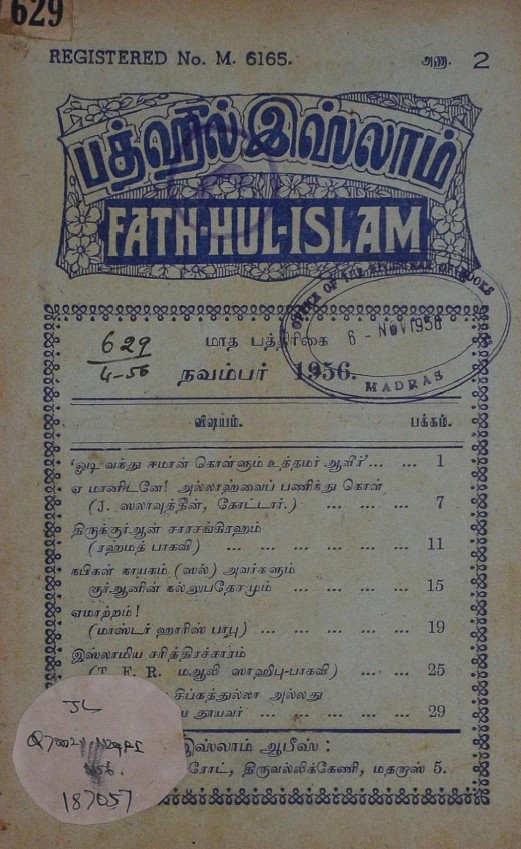 629
REGISTERED No. M. 6165.
அணா. 2
பத்ஹுல் இஸ்லாம்
FATH-HUL-ISLAM
OFFICE OF THE REGISTRAR OF BOOKS
6 - NOV 1956
MADRAS
629
4-56
மாத பத்திரிகை
நவம்பர் 1956.
விஷயம். பக்கம்.
'ஓடி வந்து ஈமான் கொள்ளும் உத்தமர் ஆவீர்' ... ... 1
ஏ மானிடனே! அல்லாஹ்வைப் பணிந்து கொள்
(J. ஸலாவுத்தீன், கோட்டார்.) ... ... ... 7
திருக்குர்ஆன் சாரசங்கிரஹம்
(ரஹ்மத் பாகவி) ... ... ... ... ... 11
நபிகள் நாயகம் (ஸல்) அவர்களும்
குர்ஆனின் நல்லுபதேசமும் ... ... ... ... 15
ஏமாற்றம்!
(மாஸ்டர் ஹாரிஸ் பாபு) ... ... ... ... 19
இஸ்லாமிய சரித்திரச்சாரம்
(T. F. R. மஆலி ஸாஹிபு-பாகவி) ... ... 25
சிப்கத்துல்லா அல்லது
ய தூயவர் ... ... ... ... 29
இஸ்லாம் ஆபீஸ் :
ரோட், திருவல்லிக்கேணி, மதராஸ் 5.
JL
187057